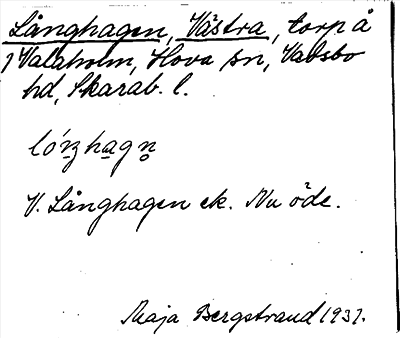 Långhagen, Västra, torp å
Valaholm, Hova sn, Vadsbo
hd, Skarab. l.
V. Långhagen ek. Nu öde.
Maja Bergstrand 1937.